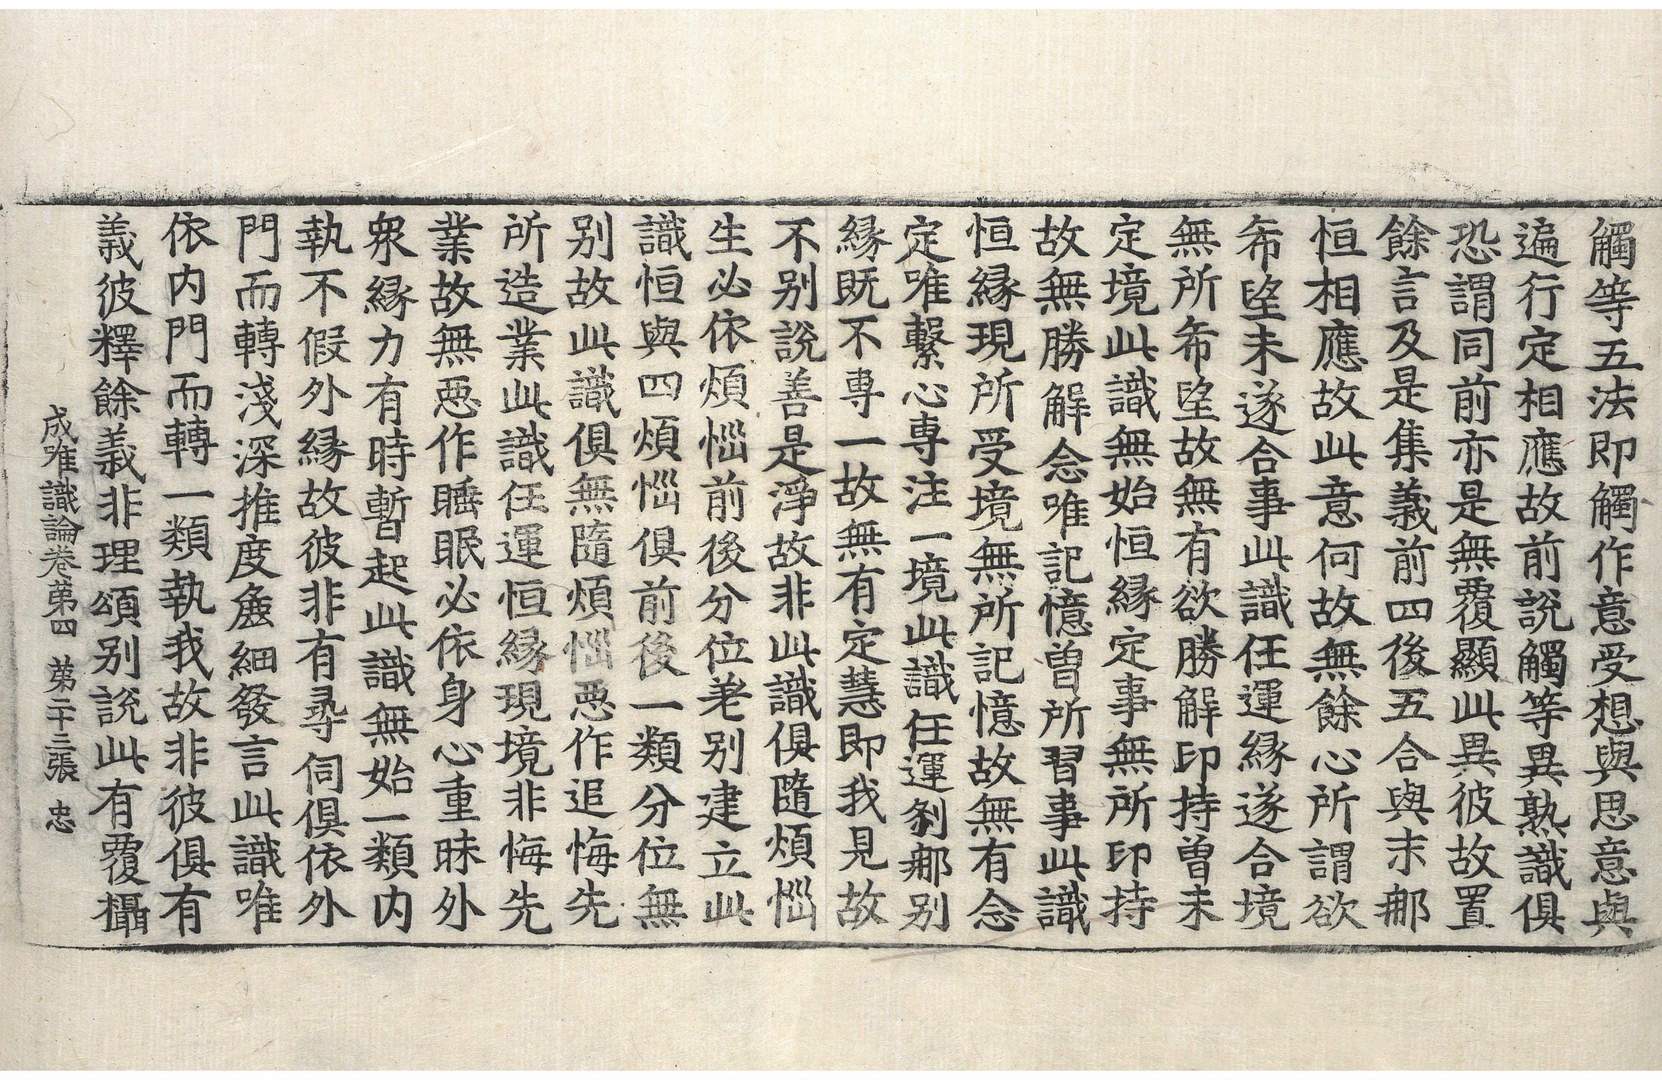 觸等五法即觸作意受想與思意與
遍行定相應故前說觸等異熟識俱
恐謂同前亦是無覆顯此異彼故置
餘言及是集義前四後五合與末那
恒相應故此意何故無餘心所謂欲
希望未遂合事此識任運緣遂合境
無所希望故無有欲勝解印持曾未
定境此識無始恒緣定事無所印持
故無勝解念唯記憶曾所習事此識
恒緣現所受境無所記憶故無有念
定唯繫心專注一境此識任運剎那別
緣既不專一故無有定慧即我見故
不別說善是淨故非此識俱隨煩惱
生必依煩惱前後分位差別建立此
識恒與四煩惱俱前後一類分位無
別故此識俱無隨煩惱惡作追悔先
所造業此識任運恒緣現境非悔先
業故無惡作睡眠必依身心重昧外
眾緣力有時暫起此識無始一類內
執不假外緣故彼非有尋伺俱依外
門而轉淺深推度麁細發言此識唯
依內門而轉一類執我故非彼俱有
義彼釋餘義非理頌別說此有覆攝
成唯識論卷第四 第二十三張 忠